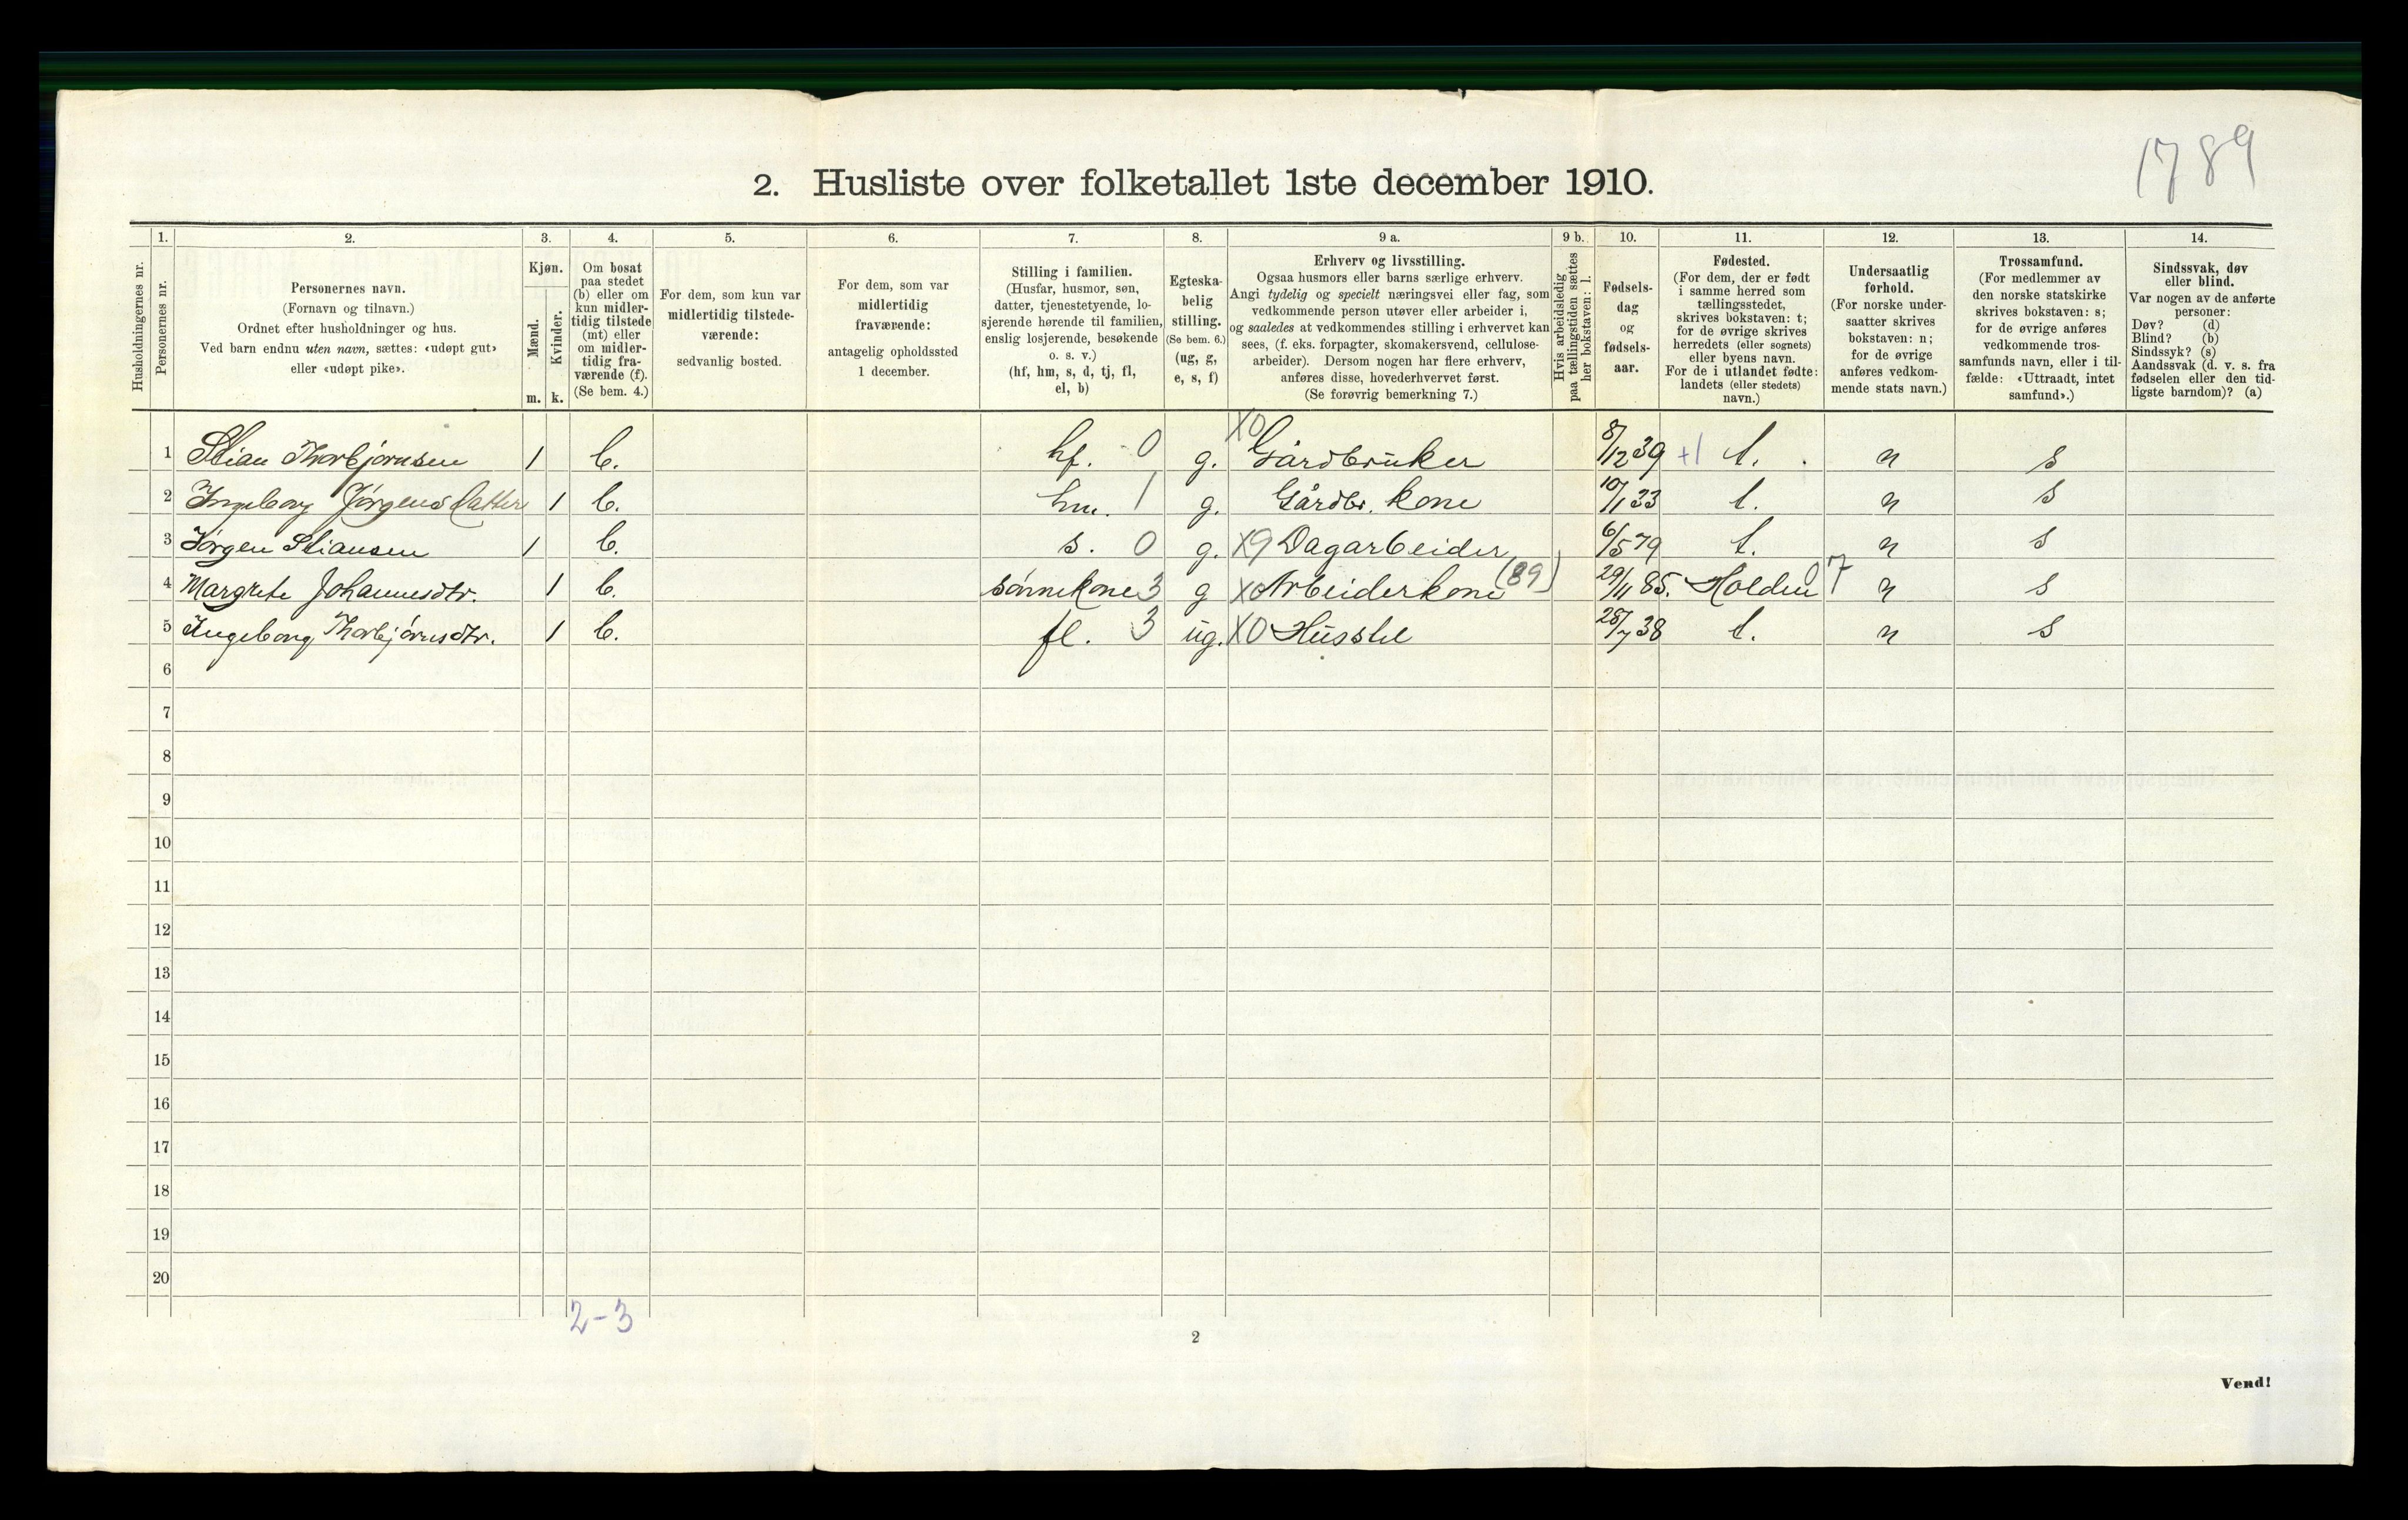 1789
2. Husliste over folketallet 1ste december 1910.
Husholdningernes nr.
1.
Personernes nr.
2.
Personernes navn.
(Fornavn og tilnavn.)
Ordnet efter husholdninger og hus.
Ved barn endnu uten navn, sættes: «udøpt gut»
eller «udøpt pike».
3.
Kjøn.
Mænd.
Kvinder.
m. k.
4.
Om bosat
paa stedet
(b) eller om
kun midler-
tidig tilstede
(mt) eller
om midler-
tidig fra-
værende (f).
(Se bem. 4.)
5.
For dem, som kun var
midlertidig tilstede-
værende:
sedvanlig bosted.
6.
For dem, som var
midlertidig
fraværende:
antagelig opholdssted
1 december.
7.
Stilling i familien.
(Husfar, husmor, søn,
datter, tjenestetyende, lo-
sjerende hørende til familien,
enslig losjerende, besøkende
o. s. v.)
(hf, hm, s, d, tj, fl,
el, b)
8.
Egteska-
belig
stilling.
(Se bem. 6.)
(ug, g,
e, s, f)
9 a.
Erhverv og livsstilling.
Ogsaa husmors eller barns særlige erhverv.
Angi tydelig og specielt næringsvei eller fag, som
vedkommende person utøver eller arbeider i,
og saaledes at vedkommendes stilling i erhvervet kan
sees, (f. eks. forpagter, skomakersvend, cellulose-
arbeider). Dersom nogen har flere erhverv,
anføres disse, hovederhvervet først.
(Se forøvrig bemerkning 7.)
9 b.
Hvis arbeidsledig
paa tællingstiden sættes
her bokstaven: l.
10.
Fødsels-
dag
og
fødsels-
aar.
11.
Fødested.
(For dem, der er født
i samme herred som
tællingsstedet,
skrives bokstaven: t;
for de øvrige skrives
herredets (eller sognets)
eller byens navn.
For de i utlandet fødte:
landets (eller stedets)
navn.)
12.
Undersaatlig
forhold.
(For norske under-
saatter skrives
bokstaven: n;
for de øvrige
anføres vedkom-
mende stats navn.)
13.
Trossamfund.
(For medlemmer av
den norske statskirke
skrives bokstaven: s;
for de øvrige anføres
vedkommende tros-
samfunds navn, eller i til-
fælde: «Uttraadt, intet
samfund».)
14.
Sindssvak, døv
eller blind.
Var nogen av de anførte
personer:
Døv? (d)
Blind? (b)
Sindssyk? (s)
Aandssvak (d. v. s. fra
fødselen eller den tid-
ligste barndom)? (a)
1 Stian Thorbjørnsen 1 b. hf. 0 g. X0 Gårdbruker 8/12 39 +1 t. n s
2 Ingeborg Jørgensdatter 1 b. hm. 1 g. Gårdbr. kone 10/1 33 t. n s
3 Jørgen Stiansen 1 b. s. 0 g. X9 Dagarbeider 6/5 79 t. n s
4 Margrete Johannesdtr. 1 b. sønnekone 3 g X0 Arbeiderkone (89) 29/11 85. Holden 07 n s
5 Ingeborg Thorbjørnsdtr. 1 b. fl. 3 ug. X0 Husstel 28/7 38 t. n s
6
7
8
9
10
11
12
13
14
15
16
17
18
19
20
2-3
2
Vend!